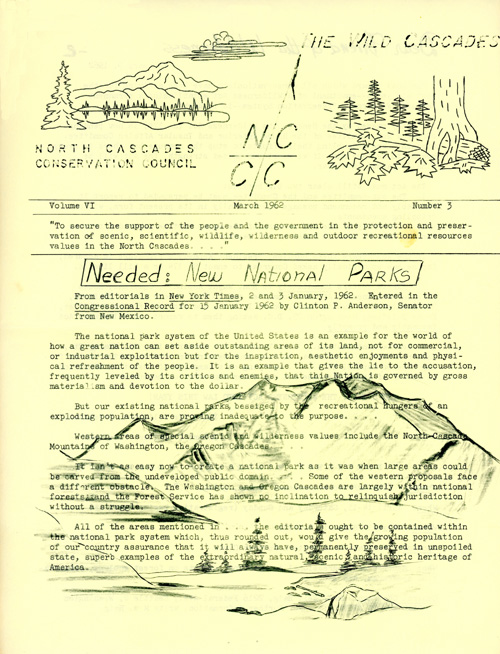 THE WILD CASCADES
NORTH CASCADES
CONSERVATION COUNCIL
N/C
C/C
Volume VI March 1962 Number 3
"To secure the support of the people and the government in the protection and preser-
vation of scenic, scientific, wildlife, wilderness and outdoor recreational resources
values in the North Cascades. . . ."
Needed: New National Parks
From editorials in New York Times, 2 and 3 January, 1962. Entered in the
Congressional Record for 15 January 1962 by Clinton P. Anderson, Senator
from New Mexico.
The national park system of the United States is an example for the world of
how a great nation can set aside outstanding areas of its land, not for commercial,
or industrial exploitation but for the inspiration, aesthetic enjoyments and physi-
cal refreshment of the people. It is an example that gives the lie to the accusation,
frequently leveled by its critics and enemies, that this Nation is governed by gross
materialism and devotion to the dollar.
But our existing national parks beseiged by the recreational hungers of an
exploding population, are proving inadequate to the purpose. . . .
Western areas of special scenic and wilderness values include the North Cascade
Mountains of Washington, the Oregon Cascades
It isn't as easy now to create a national park as it was when large areas could
be carved from the undeveloped public domain. . . . Some of the western proposals face
a different obstacle. The Washington and Oregon Cascades are largely within national
forests and the Forest Service has shown no inclination to relinquish jurisdiction
without a struggle.
All of the areas mentioned in . . . the editorial ought to be contained within
the national park system which, thus rounded out, would give the growing population
of our country assurance that it will always have, permanently preserved in unspoiled
state, superb examples of the extraordinary natural, scenic and historic heritage of
America.